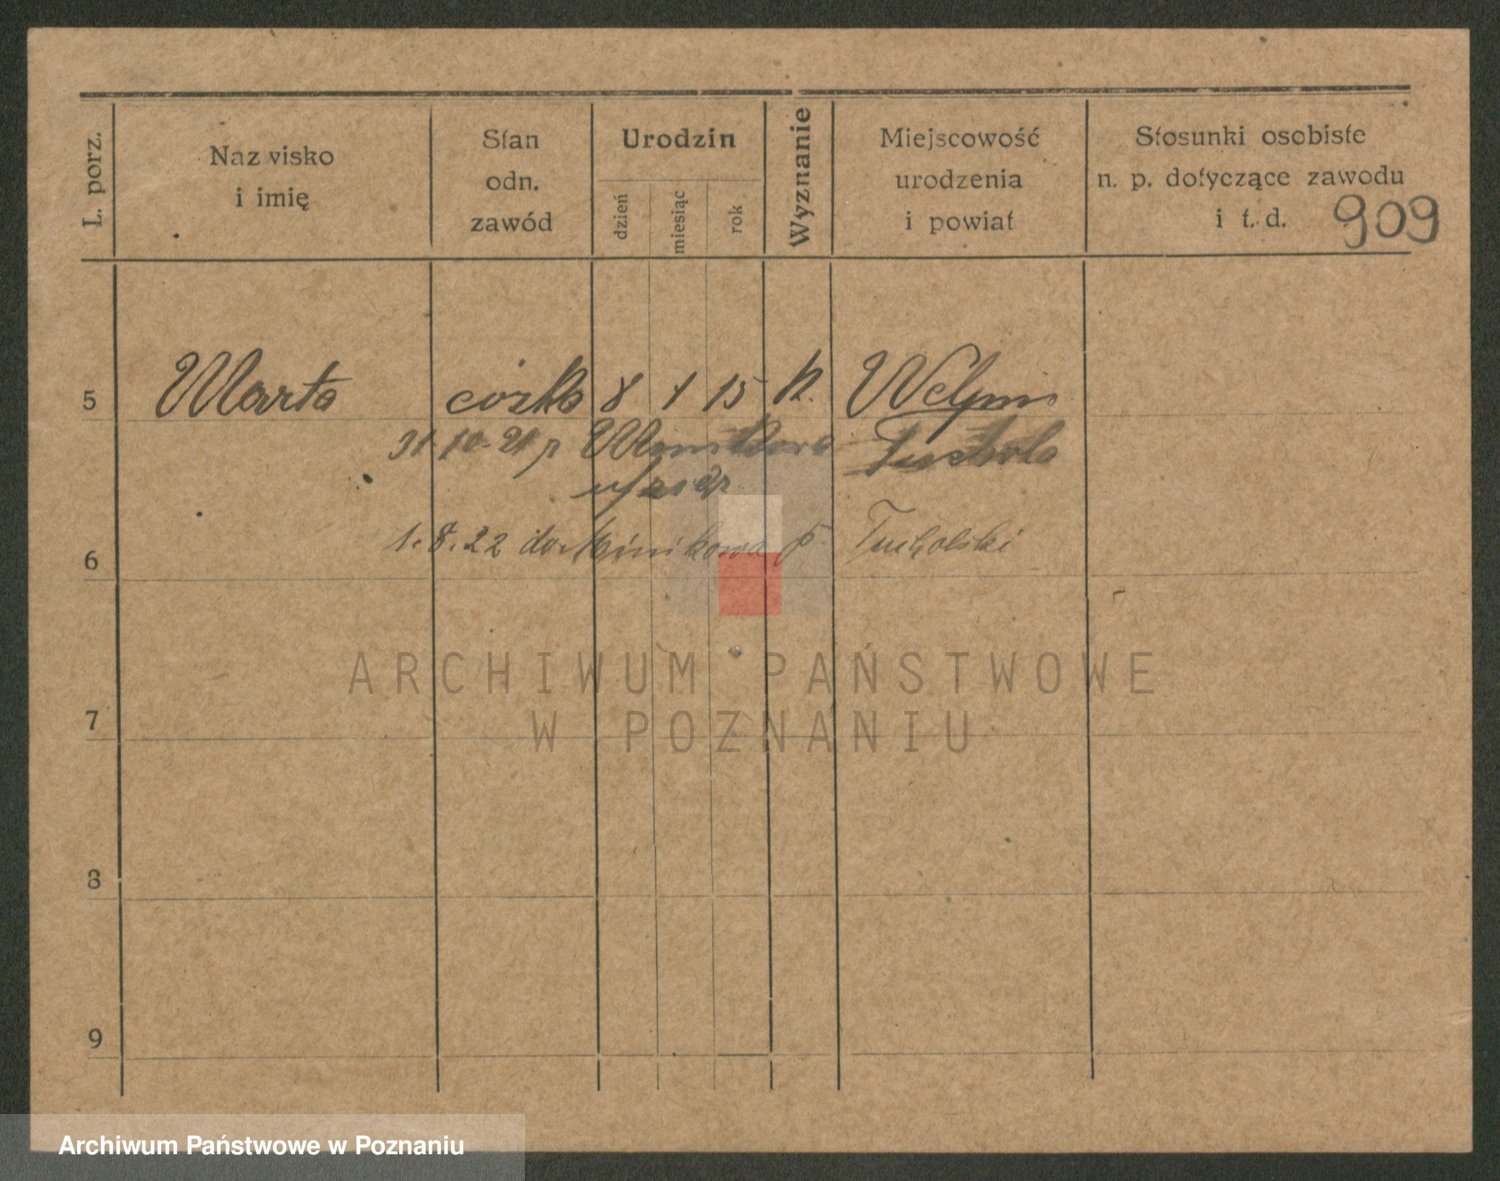 L. porz.
Nazwisko
i imię
Stan
odn.
zawód
Urodzin
dzień
miesiąc
rok
Wyznanie
Miejscowość
urodzenia
i powiat
Stosunki osobiste
n. p. dotyczące zawodu
i t. d.
909
5 Marta córka 8 1 15 k.
31.10.21 p Tuchola
6 1.8.22 do Minikowa p. Tucholski
7
8
9
ARCHIWUM PAŃSTWOWE
W POZNANIU
Archiwum Państwowe w Poznaniu